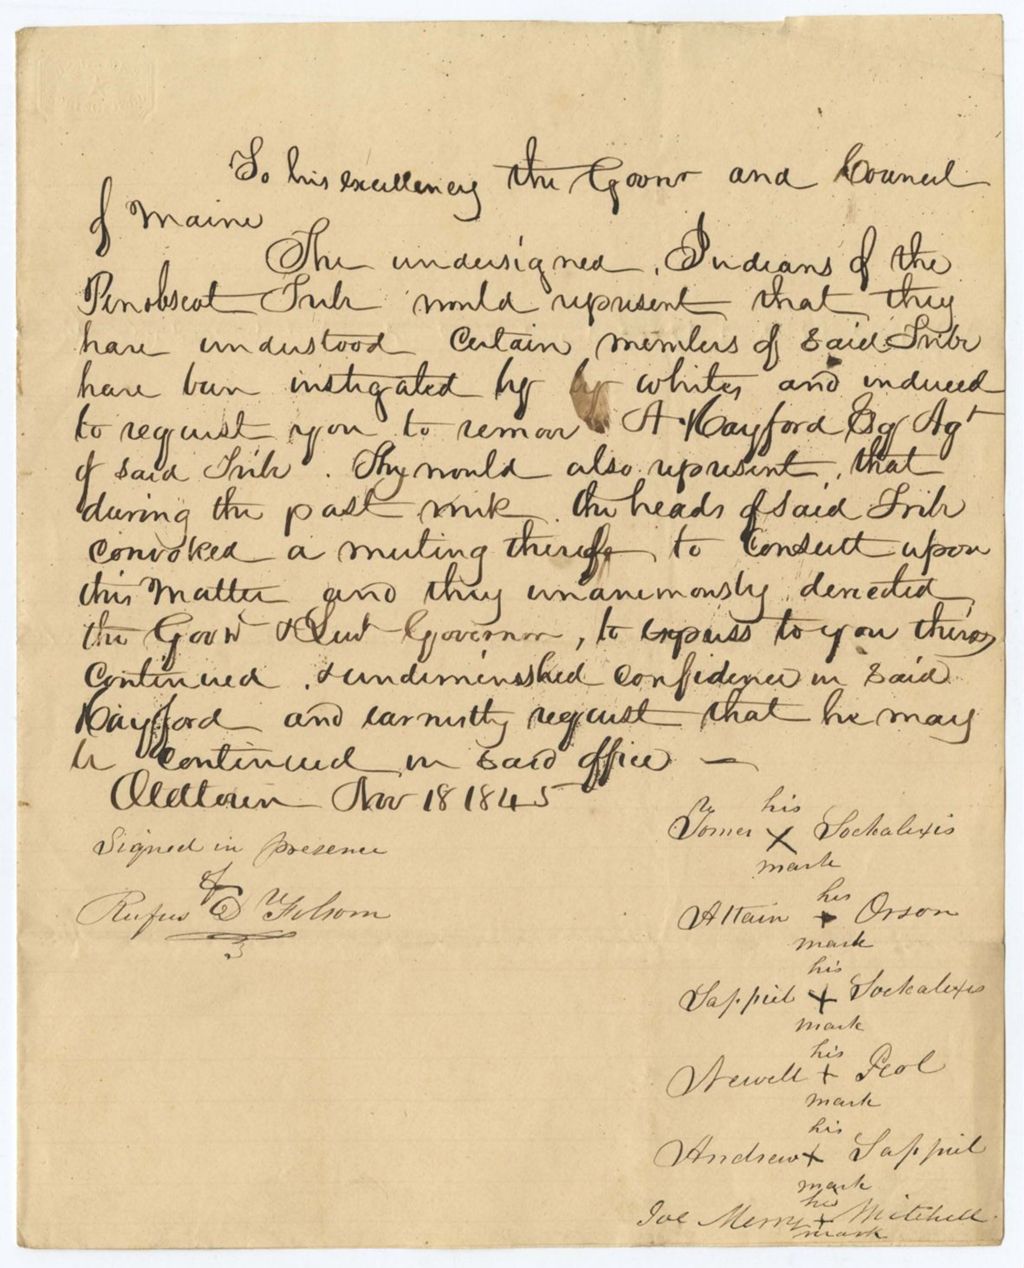 To his excellency the Govnr and Council
of Maine
The undersigned, Indians of the
Penobscot Tribe would represent that they
have understood certain members of said Tribe
have been instigated by by whites and induced
to request you to remove A. Hayford Esq Agt
of said Tribe. They would also represent, that
during the past week the heads of said Tribe
convoked a meeting thereof, to consult upon
this Matter and they unanimously directed
the Govnr & Lieut Governor, to express to you their
continued, & undiminished confidence in said
Hayford and earnestly request that he may
be continued in said office —
Oldtown Nov 18 1845
Signed in presence
of
Rufus D Folsom
his
Tomer X Sockalexis
mark
his
Attain + Orson
mark
his
Sappiel + Sockalexis
mark
his
Newell + Peol
mark
his
Andrew + Sappiel
mark
his
Joe Merry + Mitchell
mark